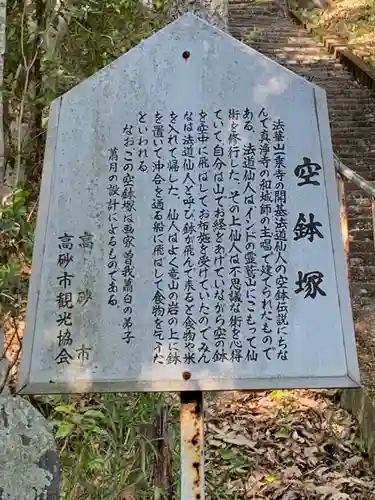 空鉢塚
法華山一乗寺の開基法道仙人の空鉢伝説にちな
んで真浄寺の和城師の主唱で建てられたもので
ある。法道仙人はインドの霊鷲山にこもって仙
術を修行した。その上仙人は不思議な術を心得
ていて自分は山でお経をあげていながら空の鉢
を空中に飛ばしてお布施を受けていたのでみん
なは法道仙人と呼び鉢が飛んで来ると食物など
を入れて帰した。仙人はよく竜山の岩の上に鉢
を置いて沖合を通る船に飛ばして食物を乞うた
といわれる。
なおこの空鉢塚は画家曽我蕭白の弟子
蕭月の設計によるものである。
高砂市
高砂市観光協会